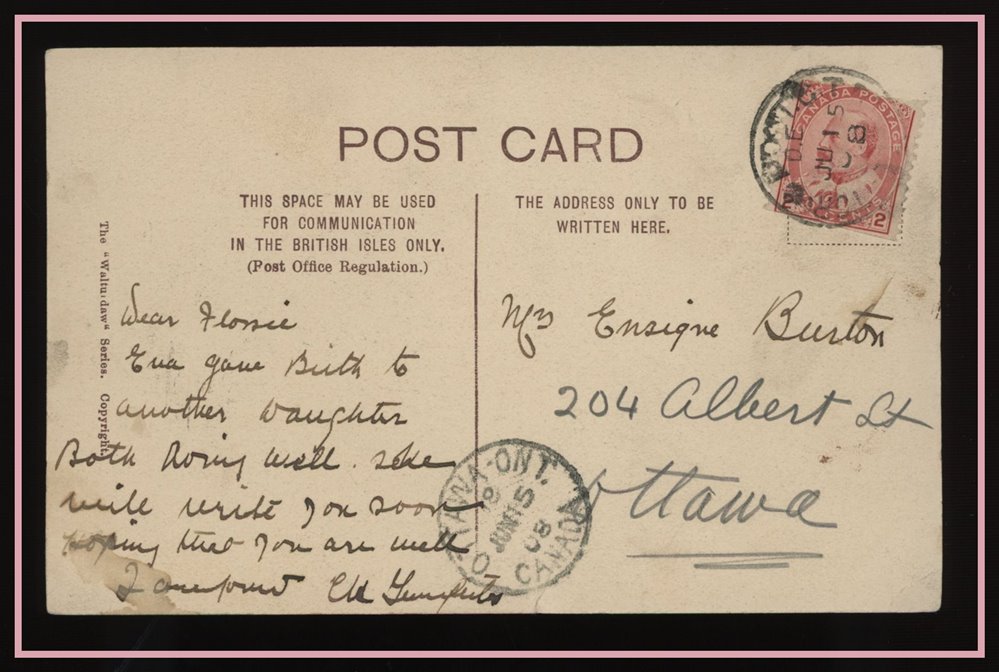 POST CARD
THIS SPACE MAY BE USED
FOR COMMUNICATION
IN THE BRITISH ISLES ONLY.
(Post Office Regulation.)
THE ADDRESS ONLY TO BE
WRITTEN HERE.
The "Waltudaw" Series. Copyright.
CANADA POSTAGE
2 CENTS 2
JU 15
08
Dear Flossie
Eva gave Birth to
another Daughter
Both doing well. she
will write you soon
Hoping that you are well
I
Mrs Ensigne Burton
204 Albert St
Ottawa
OTTAWA-ONT.
8
JUN 15
08
CANADA